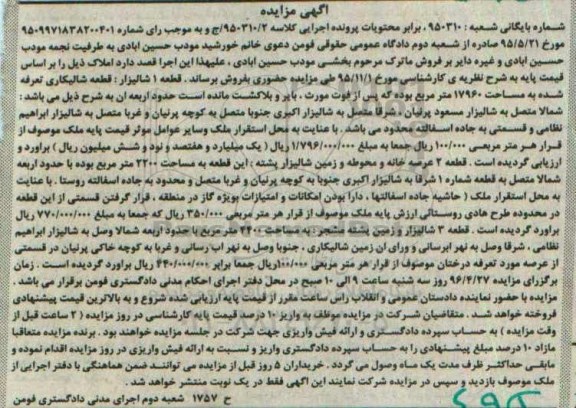 آگهی مزایده
شماره بایگانی شعبه : ۹۵۰۳۱۰ ، برابر محتویات پرونده اجرایی کلاسه ۹۵۰۳۱۰/۲/ج و به موجب رای شماره ۹۵۰۹۹۷۱۸۳۸۲۰۰۴۰۱
مورخ ۹۵/۵/۲۱ صادره از شعبه دوم دادگاه عمومی حقوقی فومن دعوی خانم خورشید مودب حسین ابادی به طرفیت نجمه مودب
حسین ابادی و غیره دایر بر فروش ماترک مرحوم بخشی مودب حسین ابادی ، علیهذا این اجرا قصد دارد املاک ذیل را بر اساس
قیمت پایه به شرح نظریه ی کارشناسی مورخ ۹۵/۱۱/۱ طی مزایده حضوری بفروش برساند . قطعه ۱ شالیزار : قطعه شالیکاری تعرفه
شده به مساحت ۱۷۹۶۰ متر مربع بوده که پس از فوت مورث ، بایر و بلاکشت مانده است حدود اربعه ان به شرح ذیل می باشد :
شمالا متصل به شالیزار مسعود پرنیان ، شرقا متصل به شالیزار اکبری جنوبا متصل به کوچه پرنیان و غربا متصل به شالیزار ابراهیم
نظامی و قسمتی به جاده اسفالته محدود می باشد . با عنایت به محل استقرار ملک وسایر عوامل موثر قیمت پایه ملک موصوف از
قرار هر متر مربعی ۱۰۰/۰۰۰ ریال جمعا به مبلغ ۱/۷۹۶/۰۰۰/۰۰۰ ریال ( یک میلیارد و هفتصد و نود و شش میلیون ریال ) براورد و
ارزیابی گردیده است . قطعه ۲ عرصه خانه و محوطه و زمین شالیزار پشته : این قطعه به مساحت ۲۲۰۰ متر مربع بوده با حدود اربعه
شمالا متصل به قطعه شماره ۱ شرقا به شالیزار اکبری جنوبا به کوچه پرنیان و غربا متصل و محدود به جاده اسفالته روستا . با عنایت
به محل استقرار ملک ( حاشیه جاده اسفالتها ، دارا بودن امکانات و امتیازات بویژه گاز در منطقه ، قرار گرفتن قسمتی از این قطعه
در محدوده طرح هادی روستائی ارزش پایه ملک موصوف از قرار هر متر مربعی ۳۵۰/۰۰۰ ریال که جمعا به مبلغ ۷۷۰/۰۰۰/۰۰۰ ریال
براورد گردیده است . قطعه ۳ شالیزار و زمین پشته مشجر به مساحت ۴۴۰۰ متر مربع با حدود اربعه شمالا وصل به شالیزار ابراهیم
نظامی ، شرقا وصل به نهر ابرسانی و ورای ان زمین شالیزاری . جنوبا وصل به نهر اب رسانی و غربا به کوچه خاکی پرنیان در قسمتی
از عرصه مورد تعرفه درختان موصوف از قرار هر متر مربعی ۱۰۰/۰۰۰ریال جمعا برابر ۴۴۰/۰۰۰/۰۰۰ ریال براورد گردیده است . زمان
برگزاری مزایده ۹۶/۴/۲۷ روز سه شنبه ساعت ۹ الی ۱۰ صبح در محل دفتر اجرای احکام مدنی دادگستری فومن برقرار می باشد .
مزایده با حضور نماینده دادستان عمومی و انقلاب راس ساعت مقرر از قیمت پایه ارزیابی شده شروع و به بالاترین قیمت پیشنهادی
فروخته خواهد شد . متقاضیان شرکت در مزایده موظف به واریز ۱۰ درصد قیمت پایه کارشناسی در روز مزایده ( ۲ ساعت قبل از
وقت مزایده ) به حساب سپرده دادگستری و ارائه فیش واریزی جهت شرکت در جلسه مزایده خواهند بود . برنده مزایده متعاقبا
مازاد ۱۰ درصد مبلغ پیشنهادی را به حساب سپرده دادگستری واریز و نسبت به ارائه فیش واریزی در روز مزایده اقدام نموده و
مابقی حداکثر ظرف مدت یک ماه وصول می گردد . خریداران ۵ روز قبل از مزایده می توانند ضمن هماهنگی با دفتر اجرایی از
ملک موصوف بازدید و سپس در مزایده شرکت نمایند این آگهی فقط در یک نوبت منتشر خواهد شد .
ح ۱۷۵۷ شعبه دوم اجرای مدنی دادگستری فومن